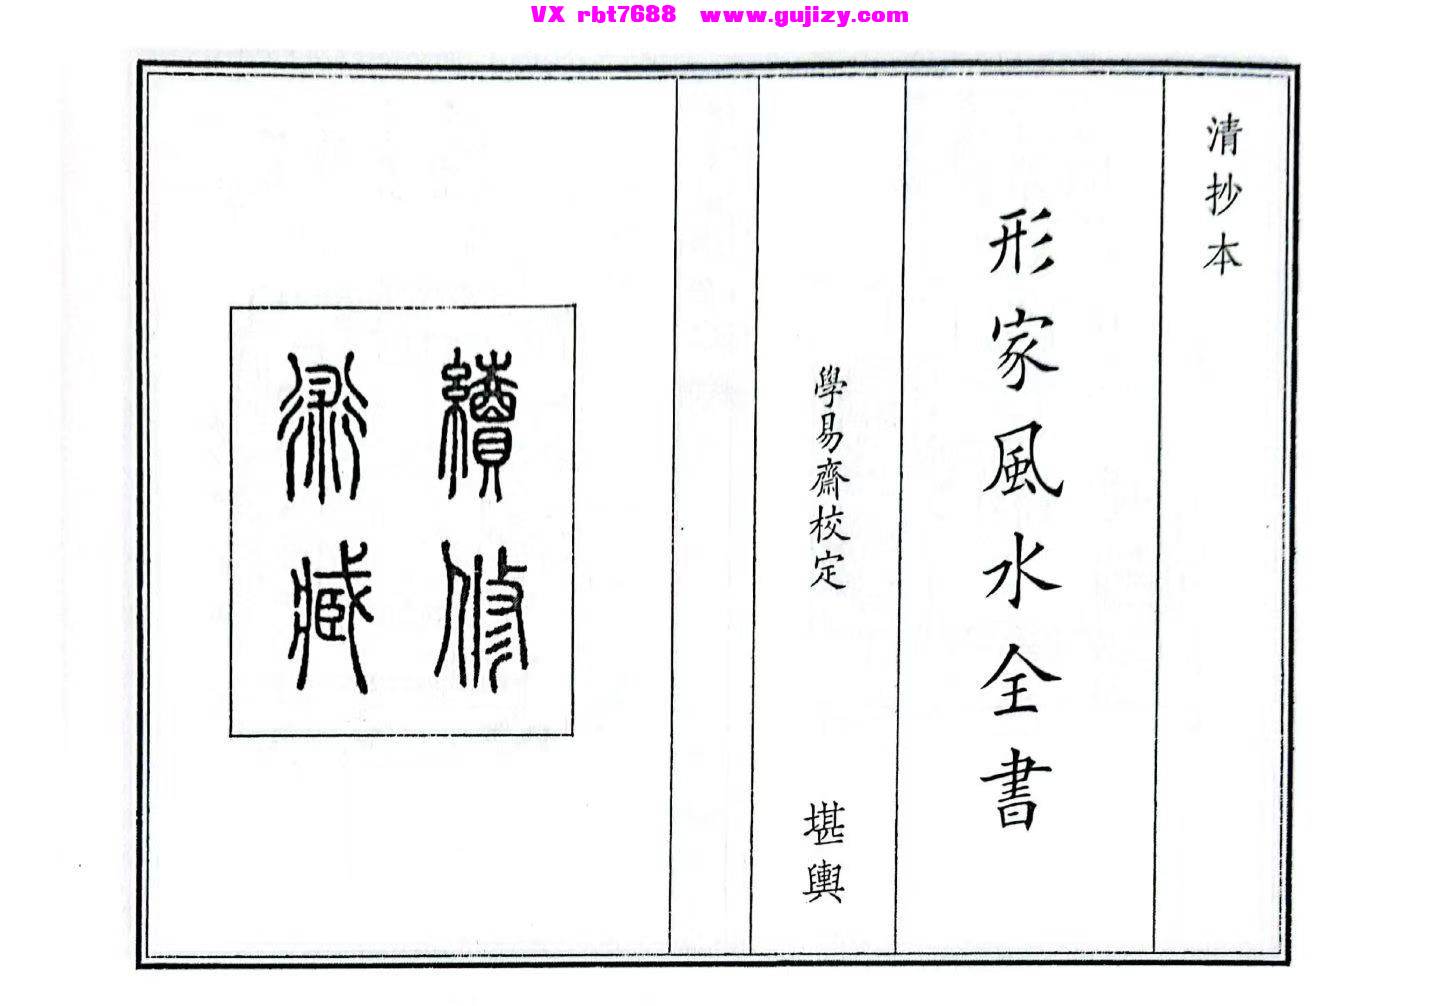 VX rbt7688 www.gujizy.com
清抄本
形家風水全書
學易齋校定
堪輿
續修
術臧